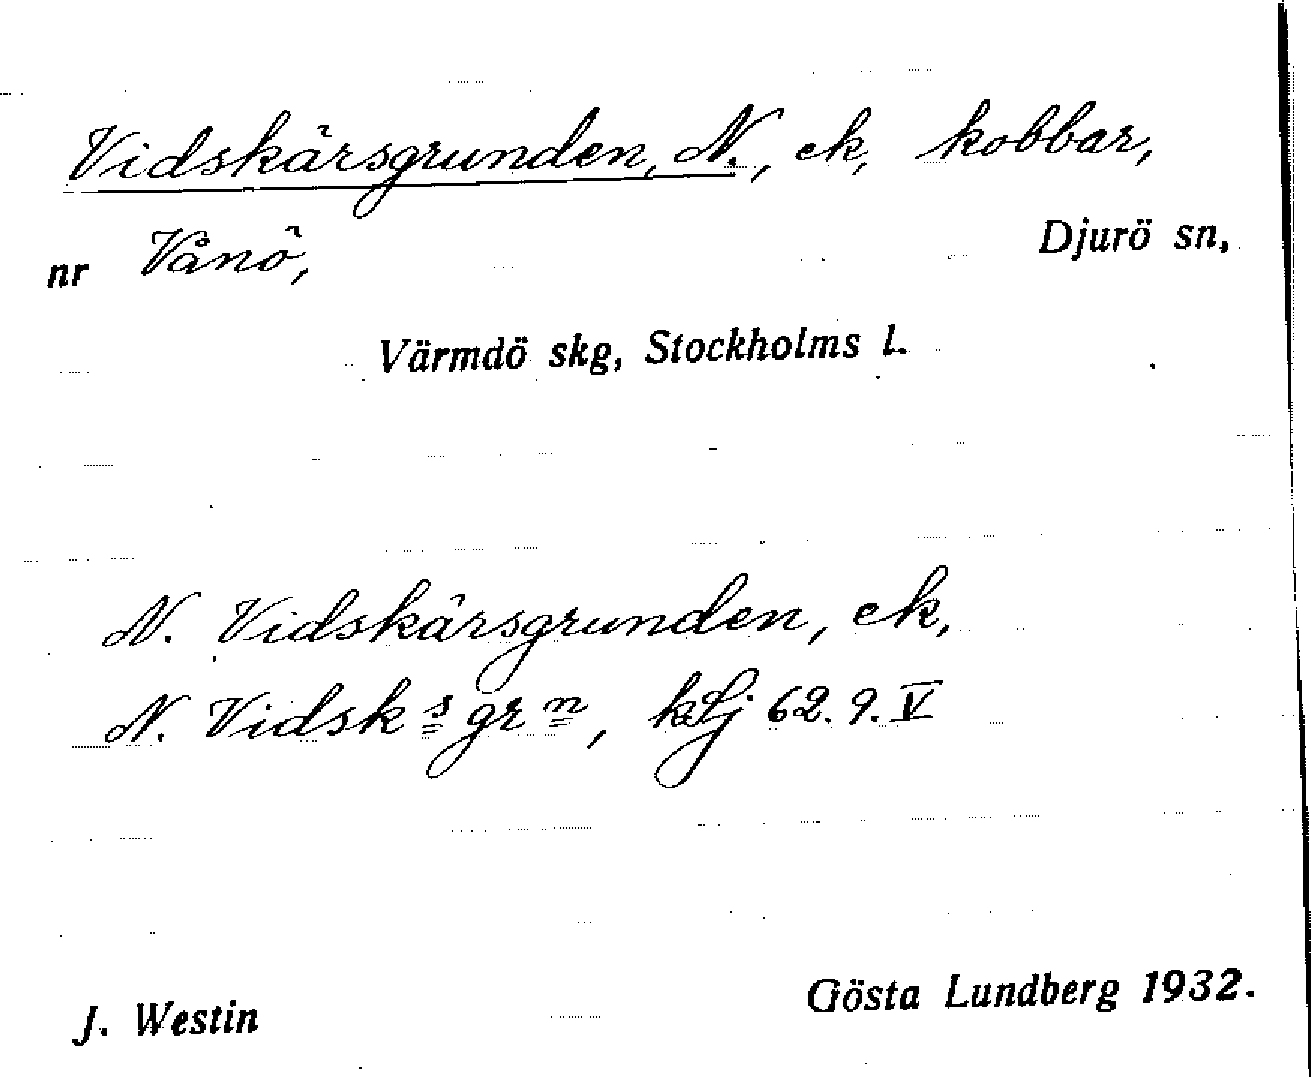 Vidskärsgrunden, N., ek, kobbar,
nr Vånö, Djurö sn,
Värmdö skg, Stockholms l.
N. Vidskärsgrunden, ek,
N. Vidsk s gr n, 62. 9. V
J. Westin Gösta Lundberg 1932.